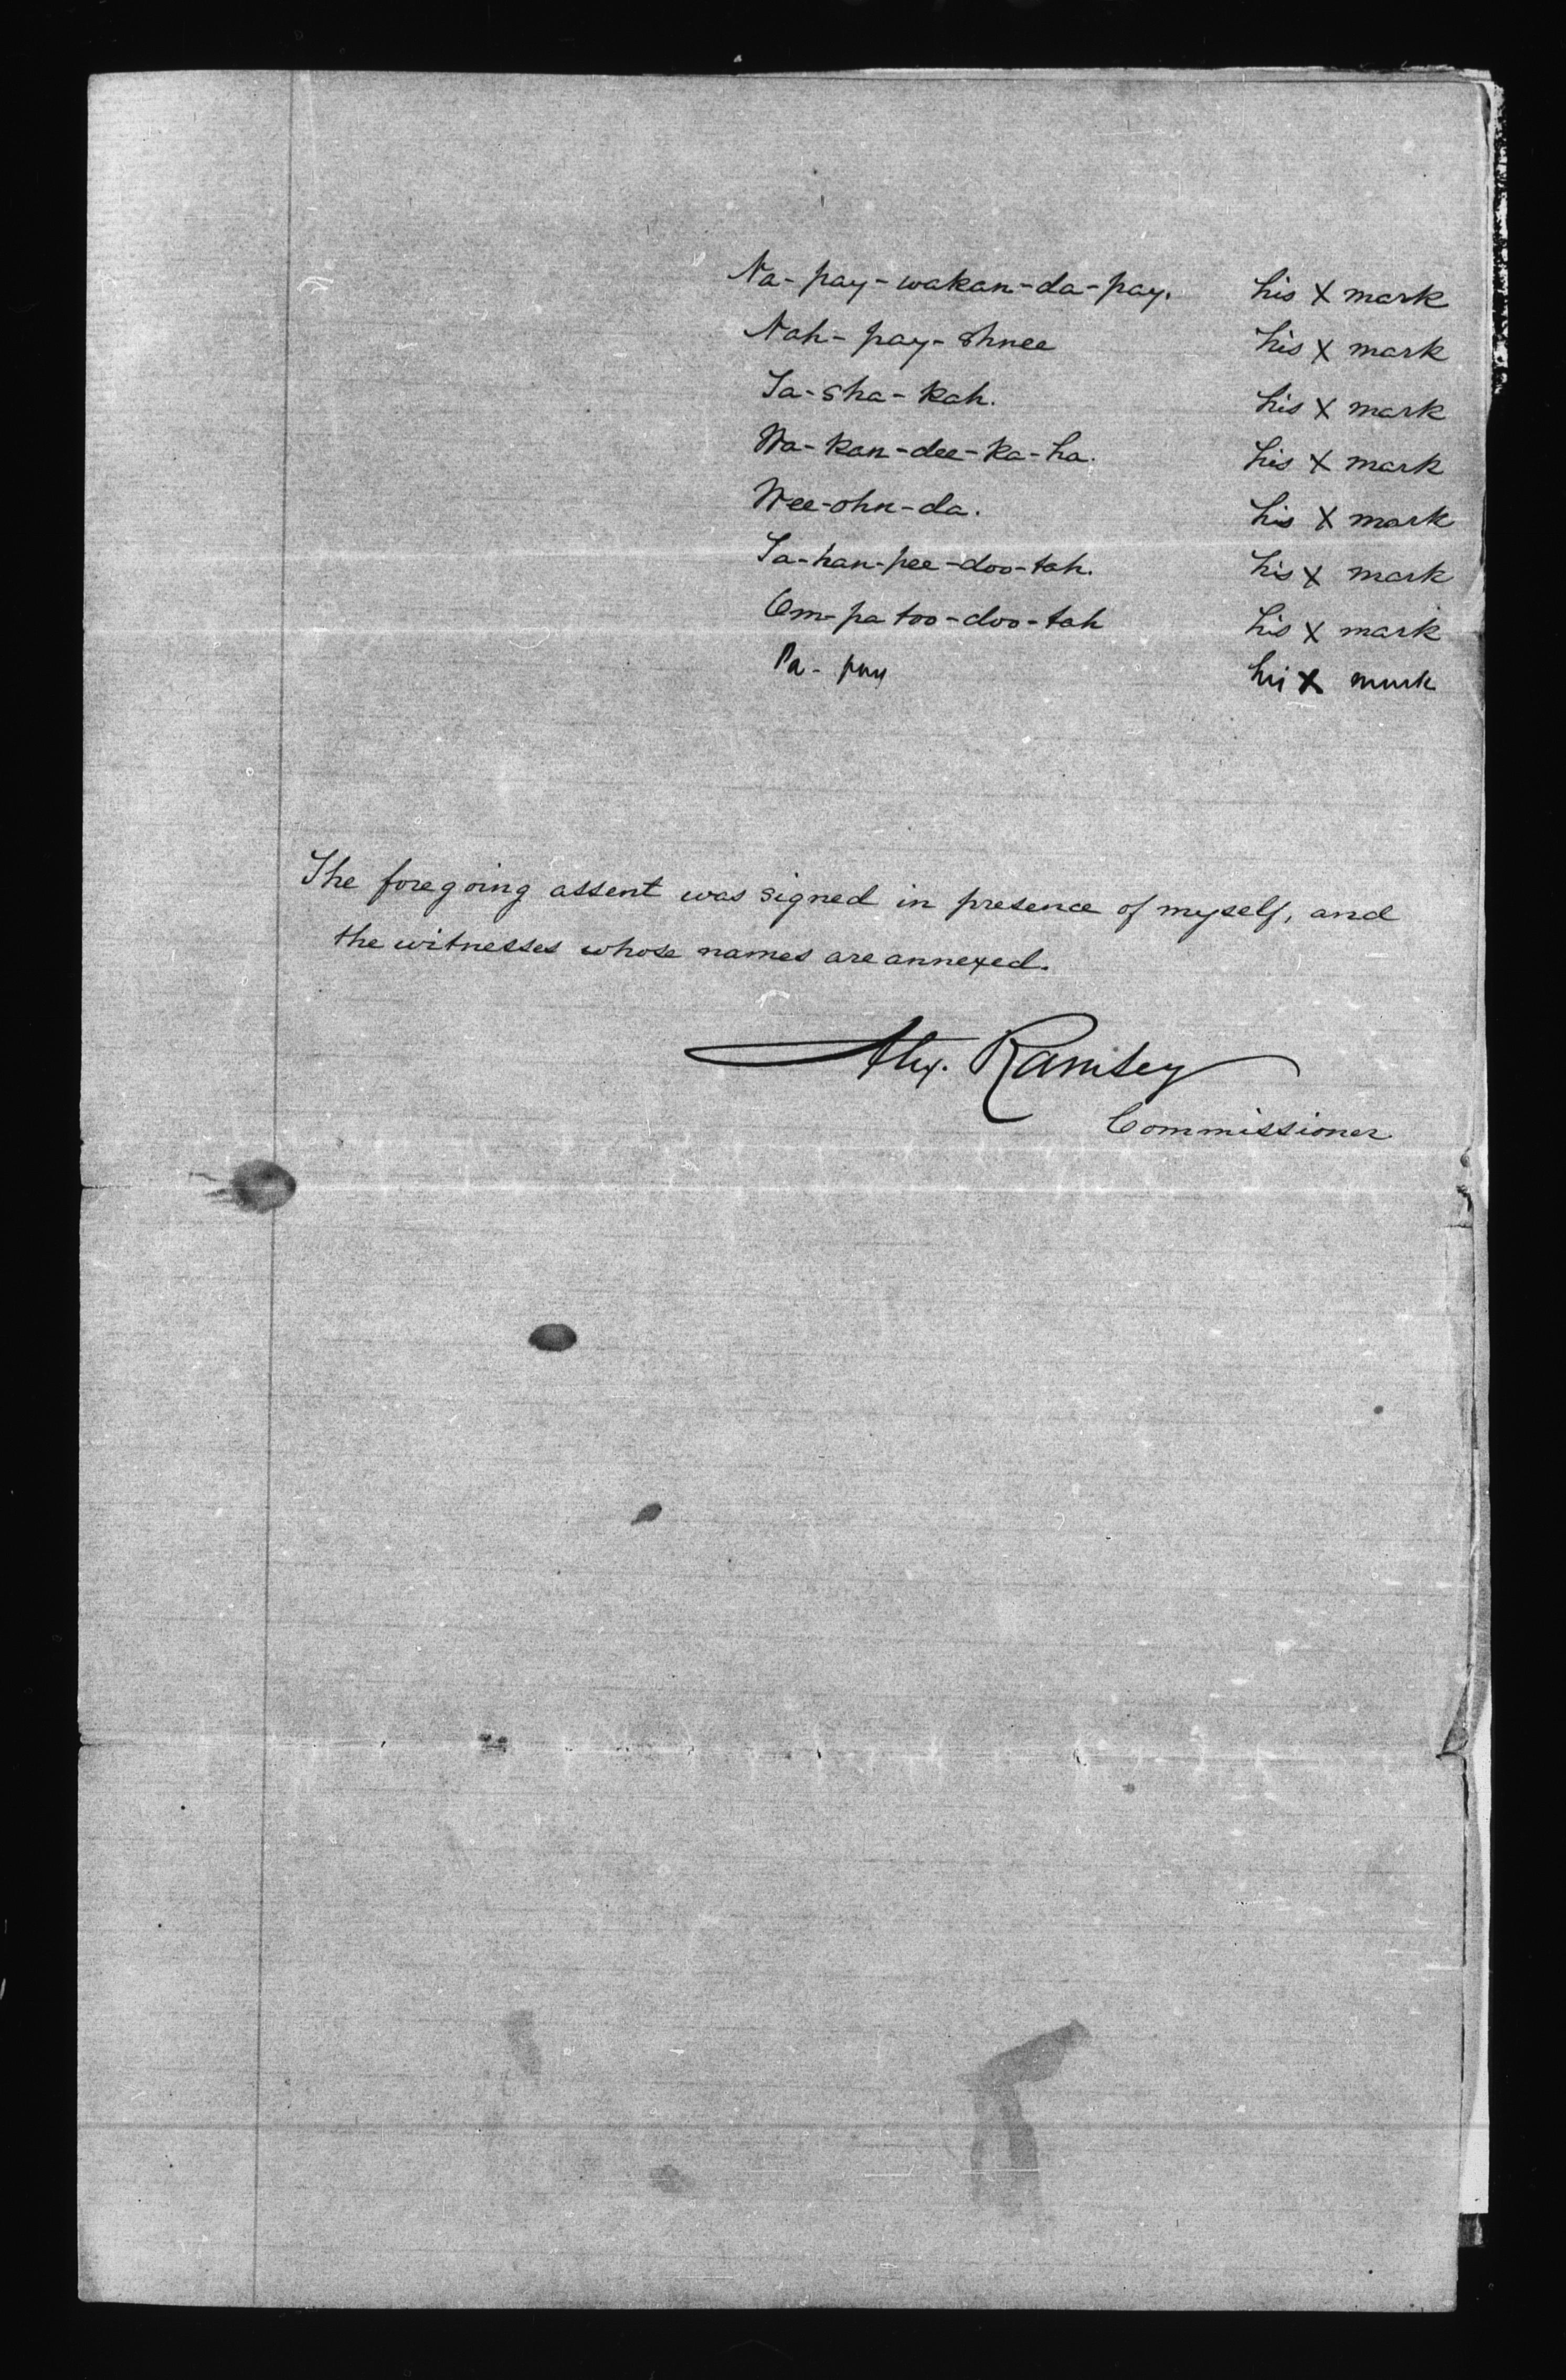 Na-pay-wakan-da-pay. his X mark
Nah-pay-shnee his X mark
Ta-sha-kah. his X mark
Wa-kan-dee-ka-ha. his X mark
Wee-ohn-da. his X mark
Ta-han-pee-doo-tah. his X mark
Om-pa too-doo-tah his X mark
Pa-pay his X mark
The foregoing assent was signed in presence of myself, and
the witnesses whose names are annexed.
Alex. Ramsey
Commissioner